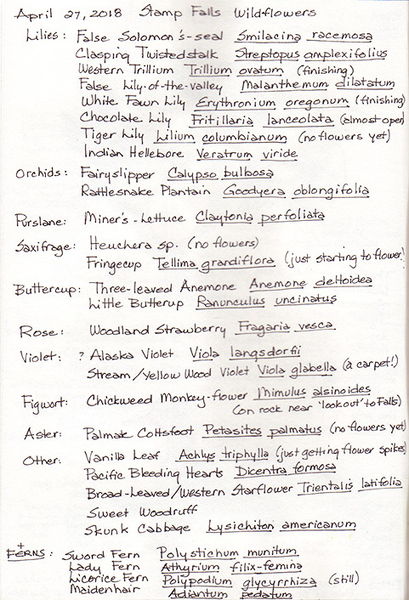 April 27, 2018 Stamp Falls Wildflowers
Lilies: False Solomon's-seal Smilacina racemosa
Clasping Twistedstalk Streptopus amplexifolius
Western Trillium Trillium ovatum (finishing)
False Lily-of-the-valley Malanthemum dilatatum
White Fawn Lily Erythronium oregonum (finishing)
Chocolate Lily Fritillaria lanceolata (almost open)
Tiger Lily Lilium columbianum (no flowers yet)
Indian Hellebore Veratrum viride
Orchids: Fairyslipper Calypso bulbosa
Rattlesnake Plantain Goodyera oblongifolia
Purslane: Miner's-Lettuce Claytonia perfoliata
Saxifrage: Heuchera sp. (no flowers)
Fringecup Tellima grandiflora (just starting to flower)
Buttercup: Three-leaved Anemone Anemone deltoidea
Little Buttercup Ranunculus uncinatus
Rose: Woodland Strawberry Fragaria vesca
Violet: ? Alaska Violet Viola langsdorfii
Stream/Yellow Wood Violet Viola glabella (a carpet!)
Figwort: Chickweed Monkey-flower Mimulus alsinoides
(on rock near 'lookout' to Falls)
Aster: Palmate Coltsfoot Petasites palmatus (no flowers yet)
Other: Vanilla Leaf Achlys triphylla (just getting flower spikes)
Pacific Bleeding Hearts Dicentra formosa
Broad-Leaved/Western Starflower Trientalis latifolia
Sweet Woodruff
Skunk Cabbage Lysichiton americanum
+
FERNS: Sword Fern Polystichum munitum
Lady Fern Athyrium filix-femina
Licorice Fern Polypodium glycyrrhiza (still)
Maidenhair Adiantum pedatum